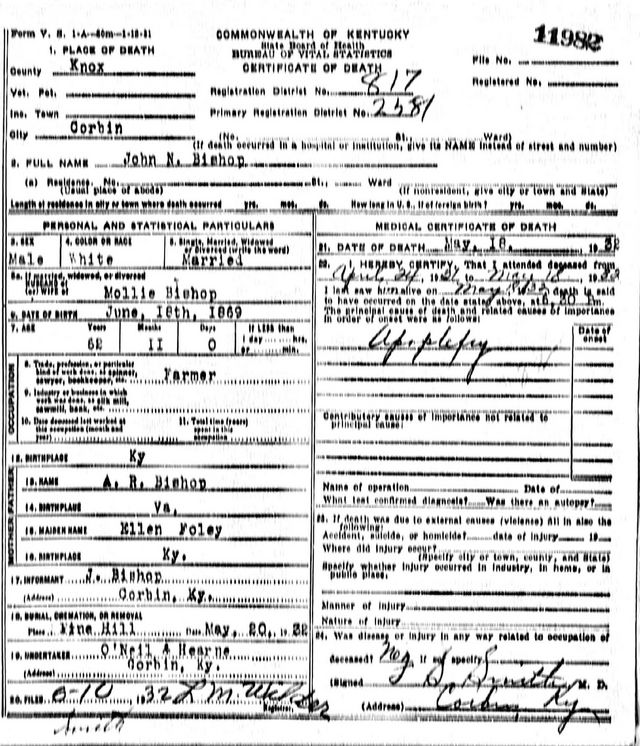 Form V. S. 1-A-50m-1-18-31
COMMONWEALTH OF KENTUCKY
State Board of Health
BUREAU OF VITAL STATISTICS
CERTIFICATE OF DEATH
11982
File No.
Registered No.
1. PLACE OF DEATH
County Knox
Vot. Pct.
Registration District No. 817
Inc. Town
Primary Registration District No. 2581
City Corbin (No. St. Ward)
(If death occurred in a hospital or institution, give its NAME instead of street and number)
2. FULL NAME John N. Bishop
(a) Residence. No. St., Ward
(Usual place of abode) (If nonresident, give city or town and State)
Length of residence in city or town where death occurred yrs. mos. ds. How long in U. S., if of foreign birth? yrs. mos. ds.
PERSONAL AND STATISTICAL PARTICULARS
3. SEX Male
4. COLOR OR RACE White
5. Single, Married, Widowed or Divorced (write the word) Married
5a. If married, widowed, or divorced
HUSBAND of
(or) WIFE of Mollie Bishop
6. DATE OF BIRTH June, 18th, 1869
7. AGE Years 62 Months 11 Days 0 If LESS than 1 day hrs. or min.
OCCUPATION
8. Trade, profession, or particular kind of work done, as spinner, sawyer, bookkeeper, etc. Farmer
9. Industry or business in which work was done, as silk mill, sawmill, bank, etc.
10. Date deceased last worked at this occupation (month and year)
11. Total time (years) spent in this occupation
12. BIRTHPLACE Ky
FATHER
13. NAME A. R. Bishop
14. BIRTHPLACE Va.
MOTHER
15. MAIDEN NAME Ellen Foley
16. BIRTHPLACE Ky.
17. INFORMANT J. Bishop
(Address) Corbin, Ky.
18. BURIAL, CREMATION, OR REMOVAL
Place Pine Hill Date May, 20, 1932
19. UNDERTAKER O'Neil & Hearne
(Address) Corbin, Ky.
20. FILED 6-10 1932
Registrar.
Smith
MEDICAL CERTIFICATE OF DEATH
21. DATE OF DEATH May, 18, 1932
22. I HEREBY CERTIFY, That I attended deceased from
to May 1932
I last saw him alive on May death is said
to have occurred on the date stated above, at 6.30 P.m.
The principal cause of death and related causes of importance
in order of onset were as follows:
Date of onset
Apoplexy
Contributory causes of importance not related to
principal cause:
Name of operation Date of
What test confirmed diagnosis? Was there an autopsy?
23. If death was due to external causes (violence) fill in also the
following:
Accident, suicide, or homicide? date of injury 19
Where did injury occur?
(Specify city or town, county, and State)
Specify whether injury occurred in industry, in home, or in
public place.
Manner of injury
Nature of injury
24. Was disease or injury in any way related to occupation of
deceased? No If so, specify
(Signed M. D.
(Address) Corbin Ky